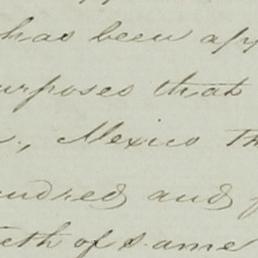 has been app
urposes that
., Mexico Th
undred and f
eth of same